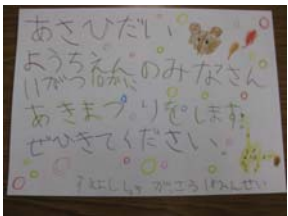 あさひだい
ようちえんのみなさん
11がつ10かに、
あきまつりをします。
ぜひきてください。